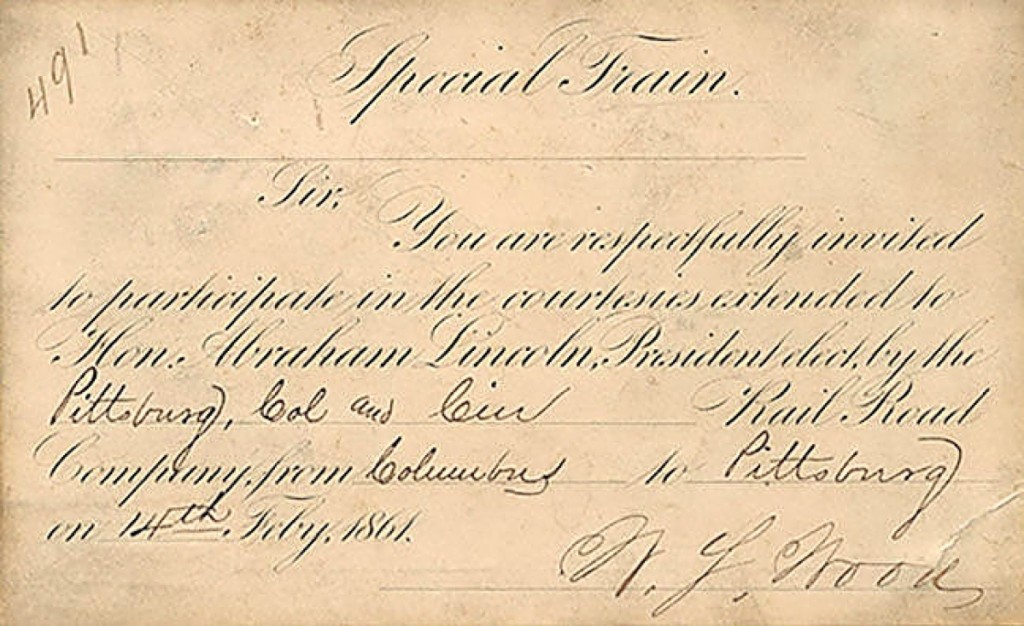 491
Special Train.
Sir,
You are respectfully invited
to participate in the courtesies extended to
Hon. Abraham Lincoln, President elect, by the
Pittsburg, Col and Cin Rail Road
Company, from Columbus to Pittsburg
on 14th Feby, 1861.
W. S. Wood